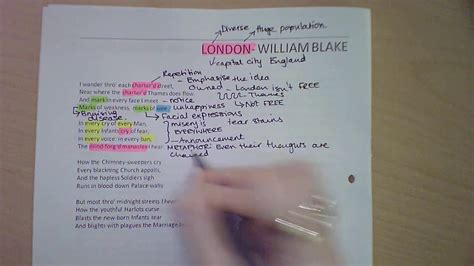 Diverse Huge population.
LONDON- WILLIAM BLAKE
capital city England
Repetition
I wander thro' each charter'd street,
- Emphasise the idea
Near where the charter'd Thames does flow.
Owned - London isn't FREE
Thames
And mark in every face I meet
- notice
Not FREE
Marks of weakness, marks of woe.
unhappiness
Enquiring
disease.
Facial expressions
tear stains
In every cry of every Man,
misery is
In every Infants cry of fear,
EVERYWHERE
In every voice: in every ban,
- Announcement
The mind-forg'd manacles I hear
METAPHOR: Even their thoughts are
chained
How the Chimney-sweepers cry
Every blackning Church appalls,
And the hapless Soldiers sigh
Runs in blood down Palace walls
But most thro' midnight streets I
How the youthful Harlots curse
Blasts the new-born Infants tear
And blights with plagues the Marriage